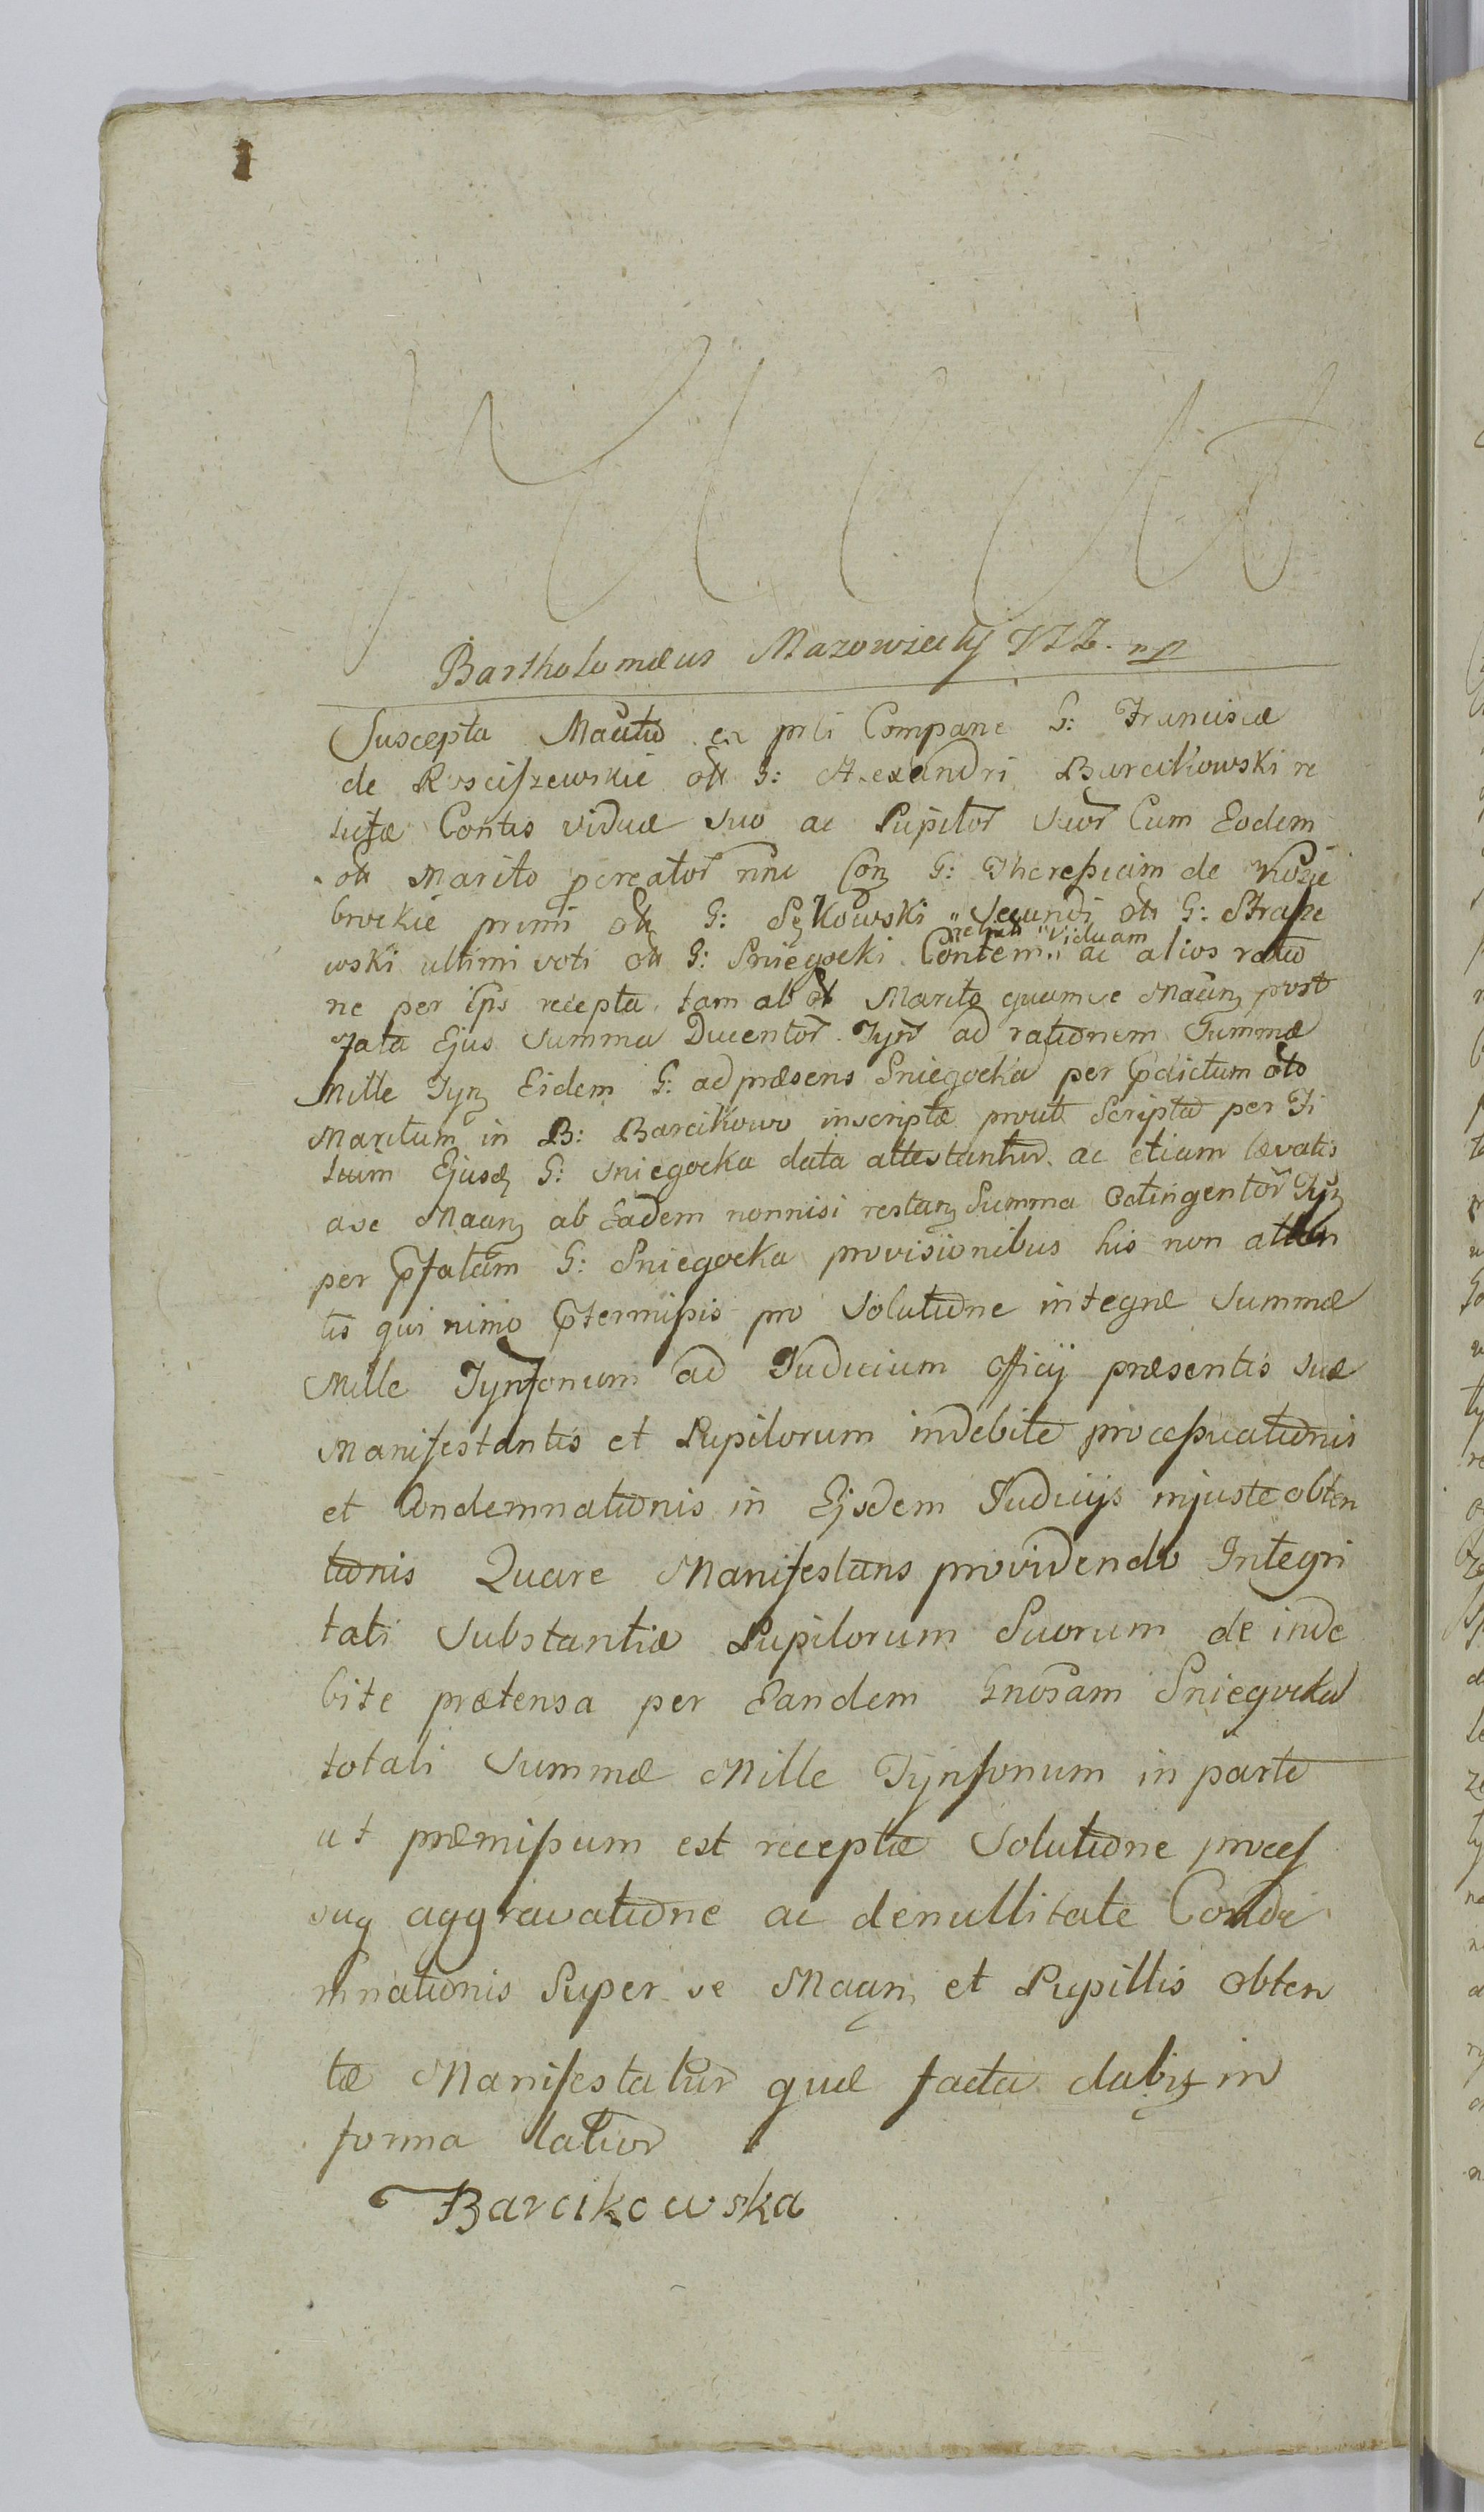 Bartholomæus Mazowiecky VSL. mp
Suscepta Maũtio ex prli Compane G: Franciscæ
de Rosciszewskie olt G: Alexandri Barcikowski re
lictæ Contis viduæ suo ac Pupilor suor Cum Eodem
olt Marito pcreator nne Con G: Theressiam de Kozie
brockie primi olt G: Sękowski Secundi olt G: Strasze
wski ultimi voti olt G: Sniegocki relictã Viduam Contem ac alios ratio
ne per ips recepta tam ab olt Marito quam se Maañ post
fata Ejus Summa Ducentor Tynf ad rationem Summæ
Mille Tynf Eidem G: ad præsens Sniegocka per Pdictum olt
Maritum in B: Barcikowo inscriptæ prout Scripta per Fi
lium Ejusd G: Sniegocka data attestantur ac etiam levatis
a se Maañ ab Eadem nonnisi restan Summa Octingentor Tynf
per Pfatam G: Sniegocka provisionibus his non atten
tis qui nimo Ptermissis pro Solutione integræ Summæ
Mille Tynfonum ad Iudicium Officij præsentis suæ
Manifestantis et Pupilorum indebite processuationis
et Condemnationis in Ejsdem Iudicijs injuste obten
tionis Quare Manifestans providendo Integri
tati Substantiæ Pupilorum Suorum de inde
bite prætensa per Eandem Gnosam Sniegocka
totali Summæ Mille Tynfonum in parte
ut præmissum est receptæ Solutione proces
suq aggravatione ac de nullitate Conde
mnationis Super se Maañ et Pupillis obten
tæ Manifestatur quæ facta dabit in
forma latior
Barcikowska